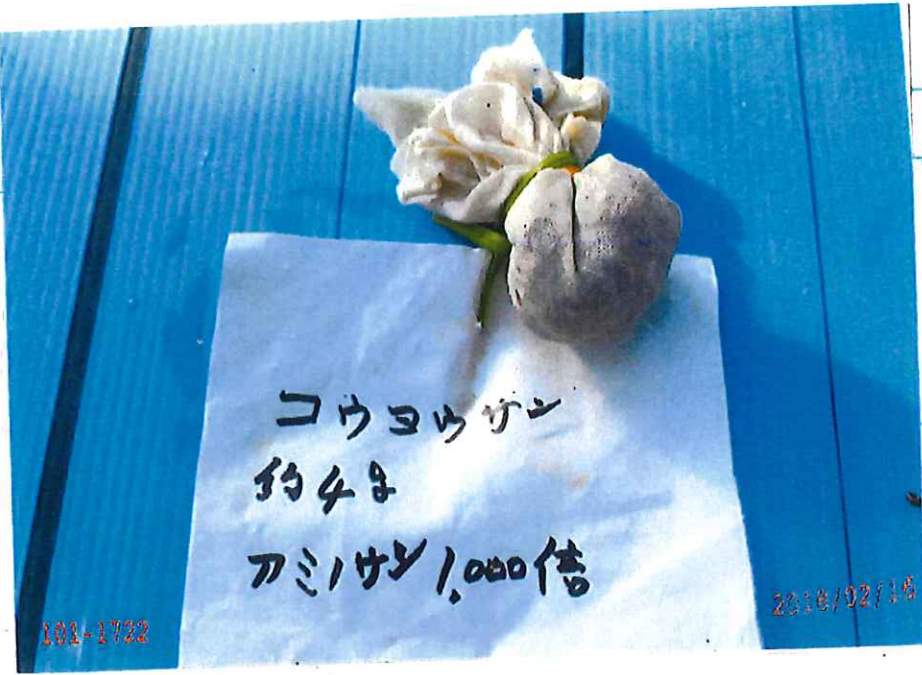 コウヨウサン
約4g
アミノサン1,000倍
101-1722
2018/02/16